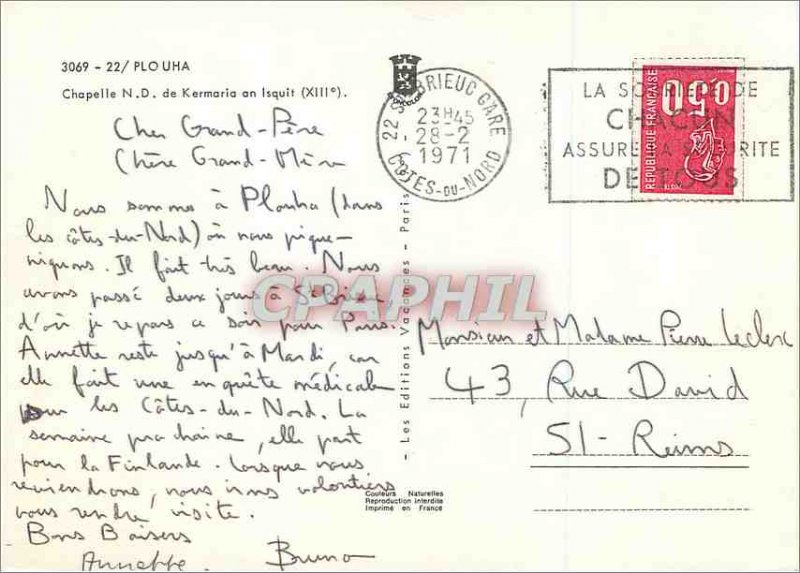 3069 - 22/ PLOUHA
Chapelle N.D. de Kermaria an Isquit (XIIIe).
Cher Grand-Père
Chère Grand-Mère
Nous sommes à Plouha (dans
les côtes-du-Nord) où nous pique-
niquons. Il fait très beau. Nous
avons passé deux jours à St Brieu
d'où je repars ce soir pour Paris.
Annette reste jusqu'à Mardi, car
elle fait une enquête médicale
sur les Côtes-du-Nord. La
semaine prochaine, elle part
pour la Finlande. Lorsque nous
reviendrons, nous irons volontiers
vous rendre visite.
Bons Baisers
Annette. Bruno
- Les Editions Vacances - Paris
Couleurs Naturelles
Reproduction Interdite
Imprimé en France
22 ST BRIEUC GARE
23H45
28-2
1971
COTES-DU-NORD
LA SOBRIETE DE
CHACUN
ASSURE LA SECURITE
DE TOUS
0,50
REPUBLIQUE FRANÇAISE
CPAPHIL
Monsieur et Madame Pierre Leclerc
43, Rue David
51-Reims